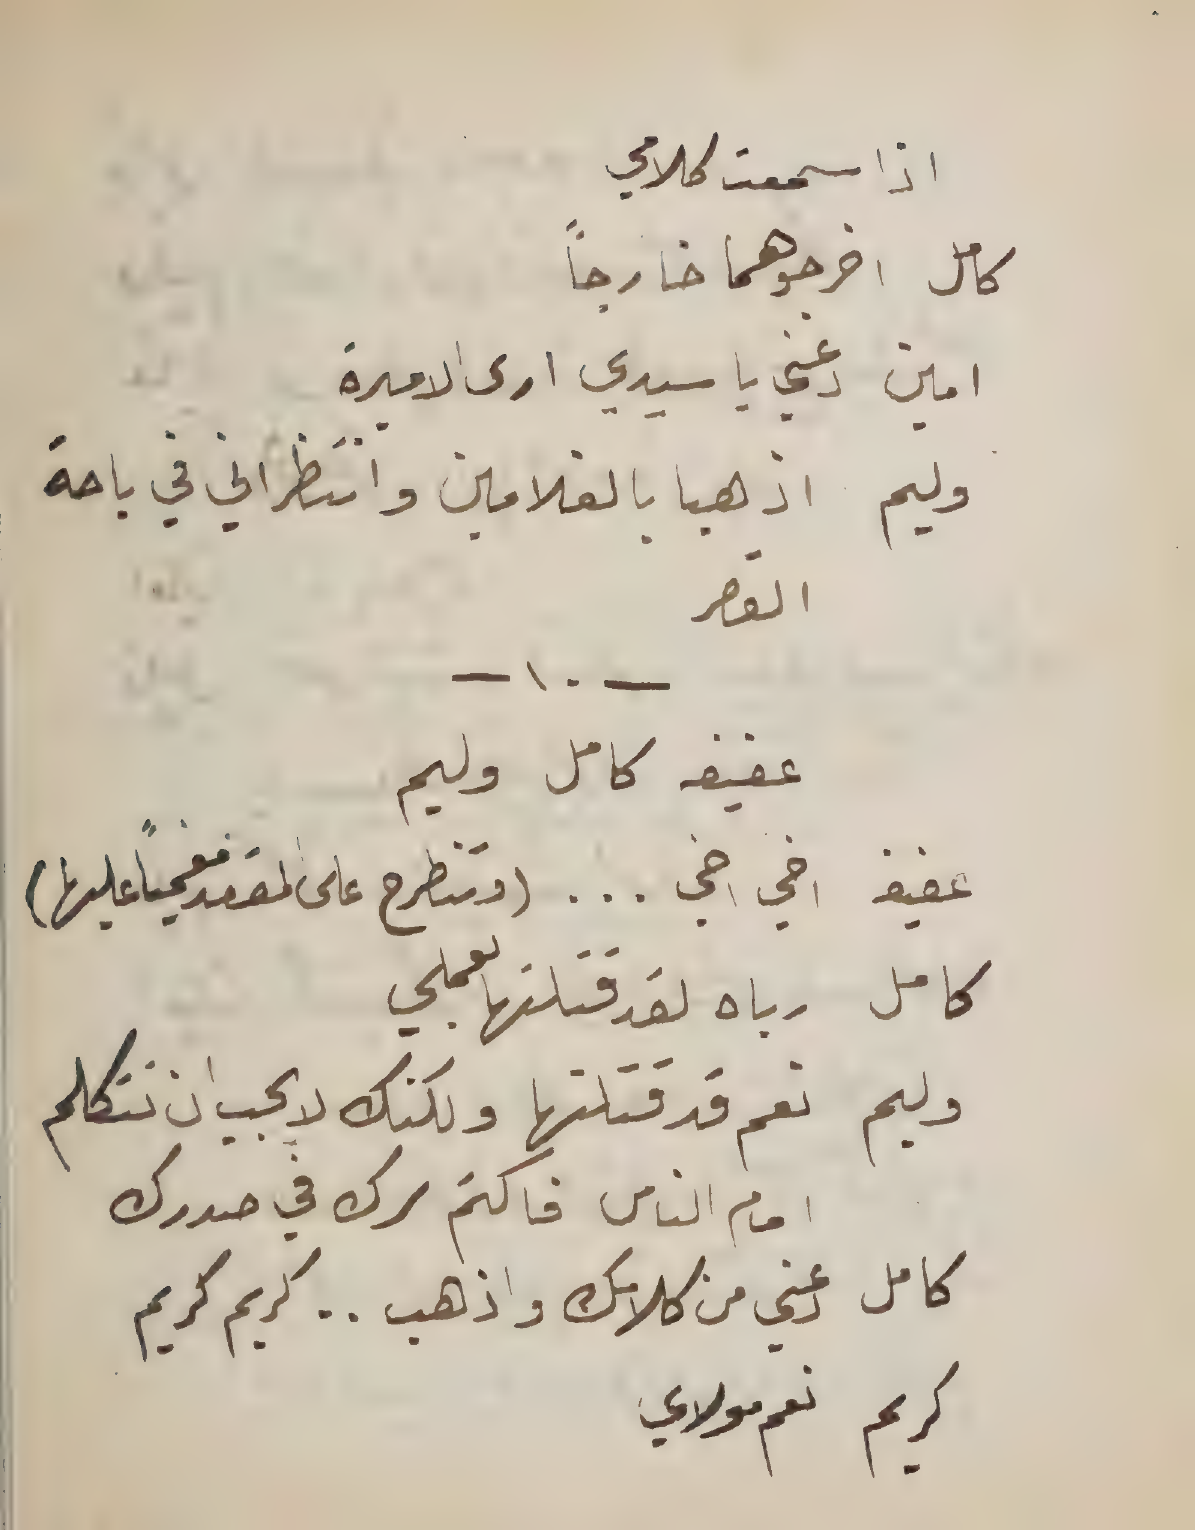 اذا سمعت كلامي
كامل اخرجوهما خارجاً
امين دعني يا سيدي ارى الاميرة
وليم اذهبا بالغلامين وانتظراني في باحة
القصر
— ١٠ —
عفيفه كامل وليم
عفيفه اخي اخي ... (وتنطرح على المقعد مغمياً عليها)
كامل رباه لقد قتلتها بعملي
وليم نعم قد قتلتها ولكنك لا يجب ان تتكلم
امام الناس فاكتم سرك في صدرك
كامل دعني من كلامك واذهب .. كريم كريم
كريم نعم مولاي